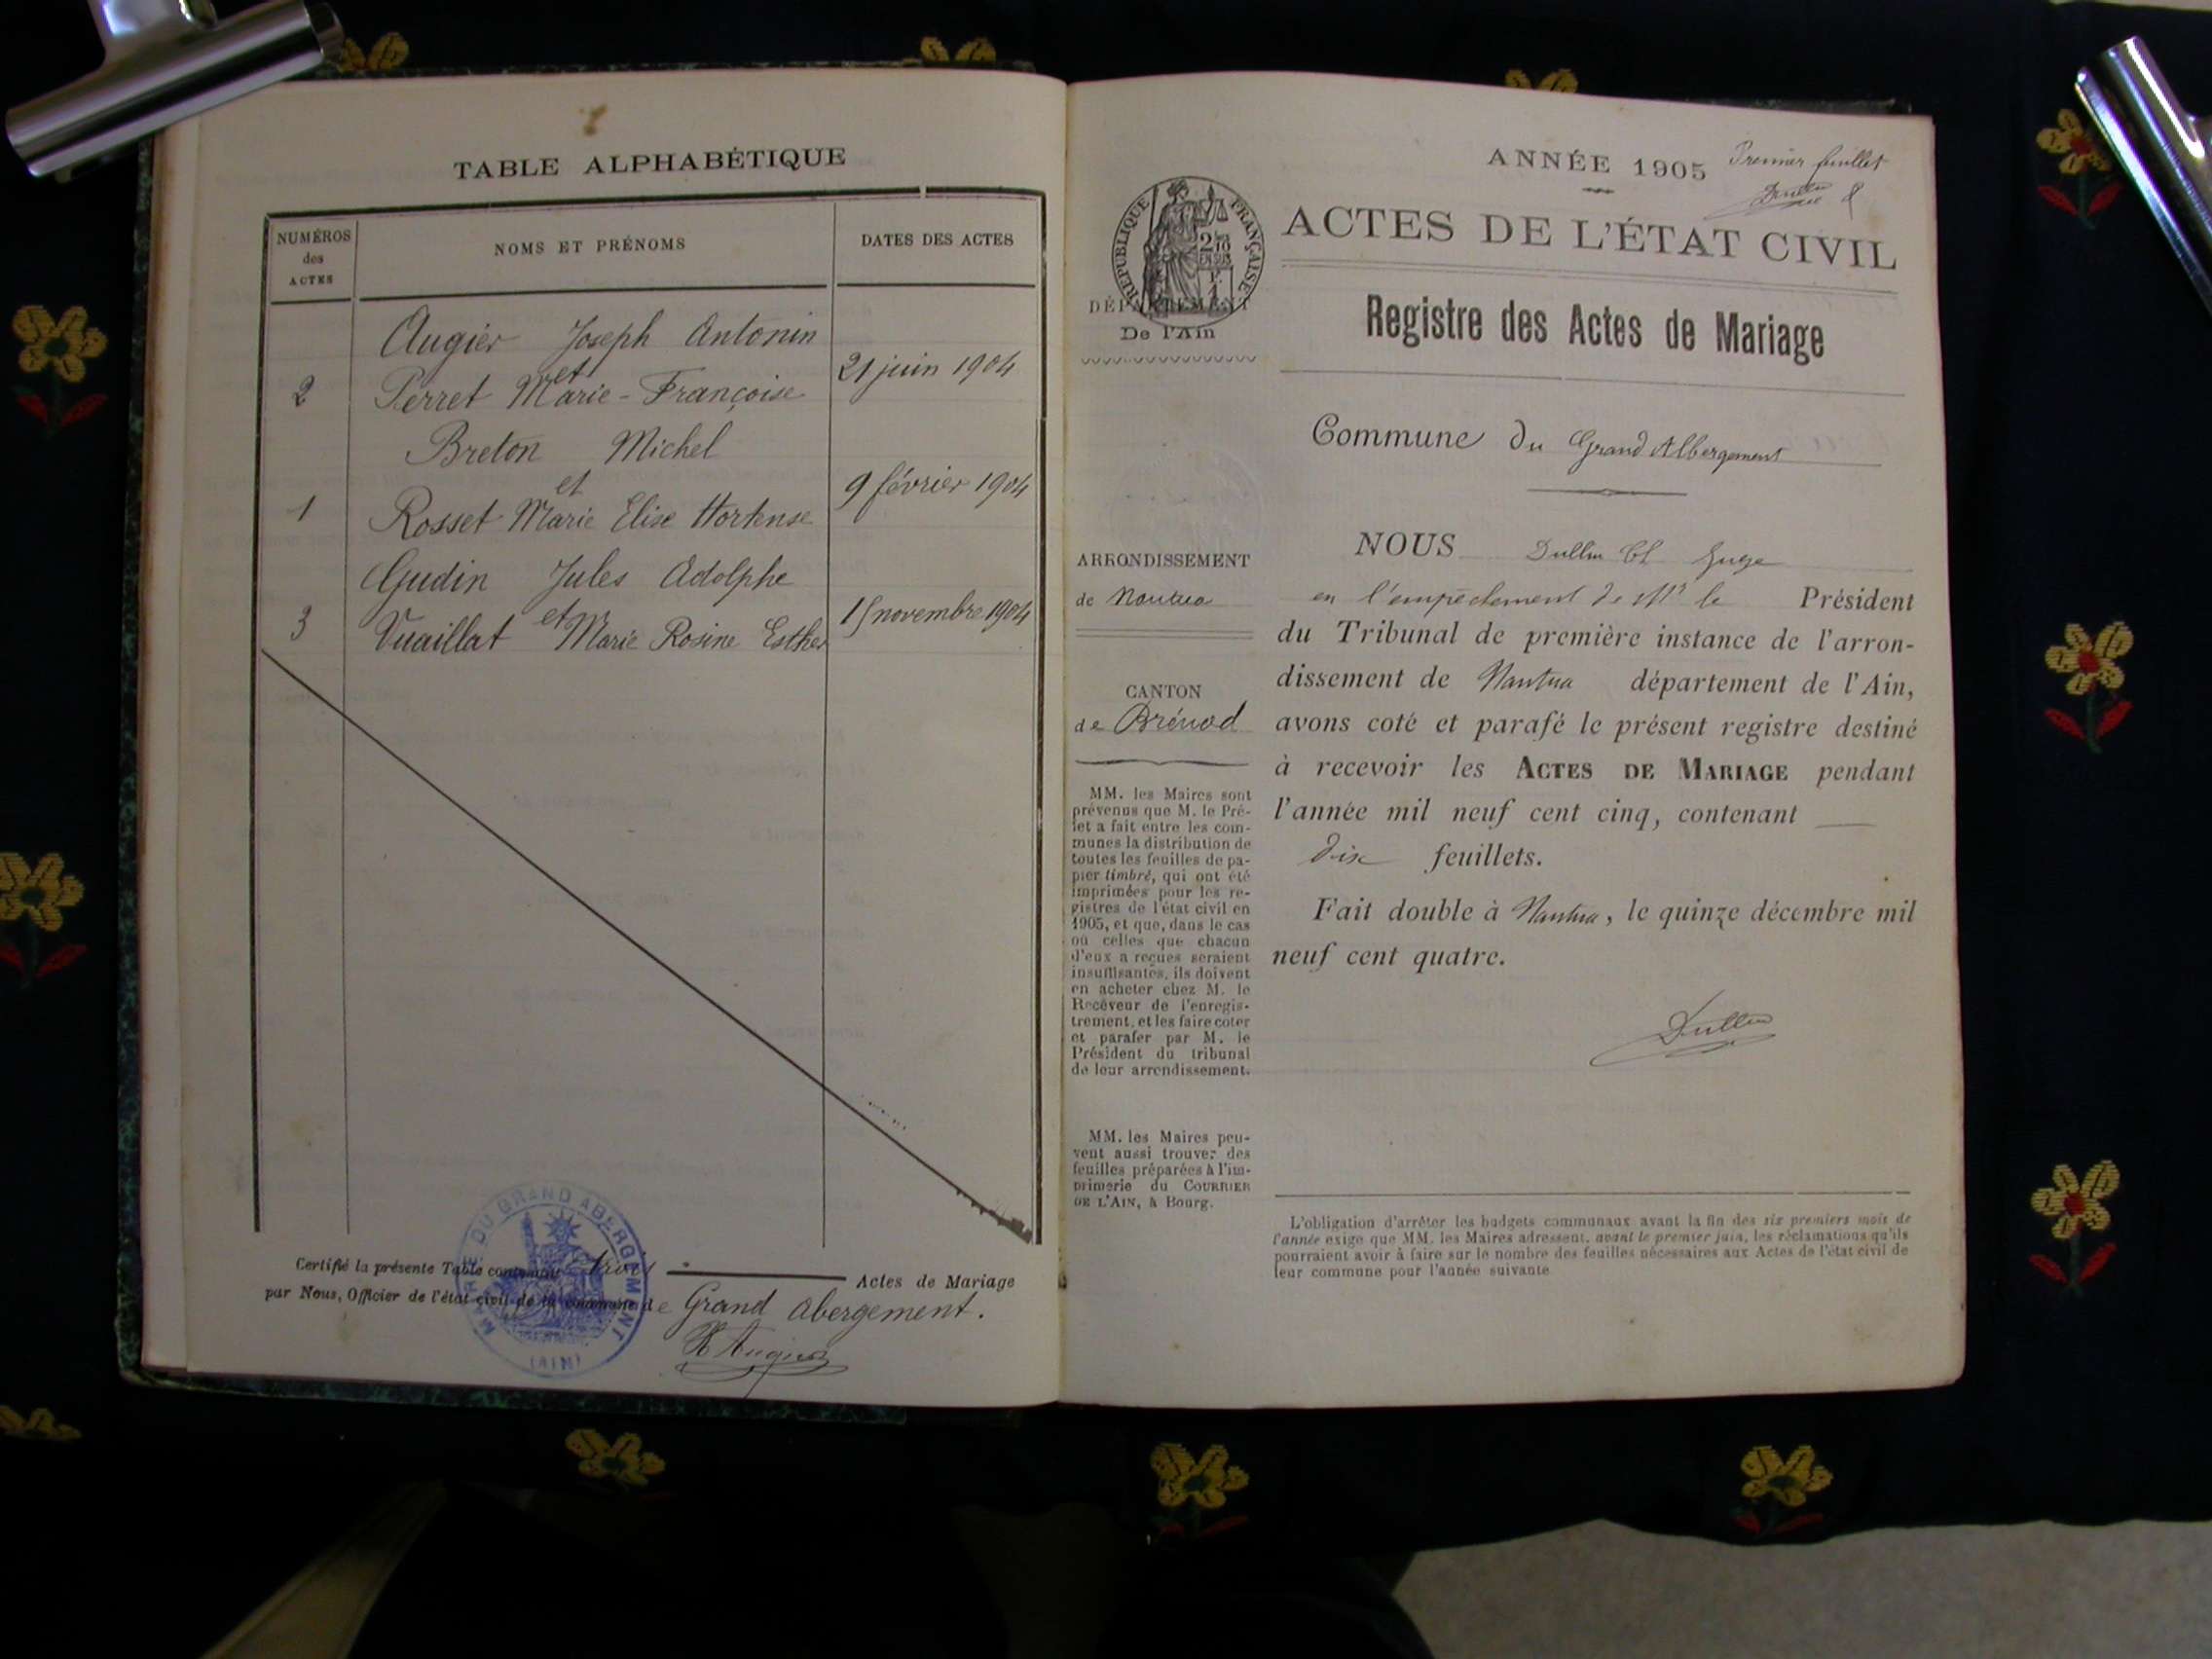 TABLE ALPHABÉTIQUE
NUMÉROS
des
ACTES
NOMS ET PRÉNOMS
DATES DES ACTES
Augier Joseph Antonin
et
2 Perret Marie-Françoise 21 juin 1904
Breton Michel
et
1 Rosset Marie Elise Hortense 9 février 1904
Gudin Jules Adolphe
et
3 Vuaillat Marie Rosine Esther 15 novembre 1904
Certifié la présente Table contenant trois Actes de Mariage
par Nous, Officier de l'état civil de la commune de Grand Abergement.
MAIRIE DU GRAND ABERGEMENT
(AIN)
ANNÉE 1905 Premier feuillet
ACTES DE L'ÉTAT CIVIL
RÉPUBLIQUE FRANÇAISE
2/10
EN SUS
DÉPARTEMENT
De l'Ain
Registre des Actes de Mariage
Commune du Grand Albergement
ARRONDISSEMENT
de Nantua
CANTON
de Brénod
MM. les Maires sont
prévenus que M. le Pré-
fet a fait entre les com-
munes la distribution de
toutes les feuilles de pa-
pier timbré, qui ont été
imprimées pour les re-
gistres de l'état civil en
1905, et que, dans le cas
où celles que chacun
d'eux a reçues seraient
insuffisantes, ils doivent
en acheter chez M. le
Receveur de l'enregis-
trement, et les faire coter
et parafer par M. le
Président du tribunal
de leur arrondissement.
MM. les Maires peu-
vent aussi trouver des
feuilles préparées à l'im-
primerie du COURRIER
DE L'AIN, à Bourg.
NOUS Dullin Ch Juge
en l'empêchement de Mr le Président
du Tribunal de première instance de l'arron-
dissement de Nantua département de l'Ain,
avons coté et parafé le présent registre destiné
à recevoir les ACTES DE MARIAGE pendant
l'année mil neuf cent cinq, contenant
dix feuillets.
Fait double à Nantua, le quinze décembre mil
neuf cent quatre.
Dullin
L'obligation d'arrêter les budgets communaux avant la fin des six premiers mois de
l'année exige que MM. les Maires adressent, avant le premier juin, les réclamations qu'ils
pourraient avoir à faire sur le nombre des feuilles nécessaires aux Actes de l'état civil de
leur commune pour l'année suivante